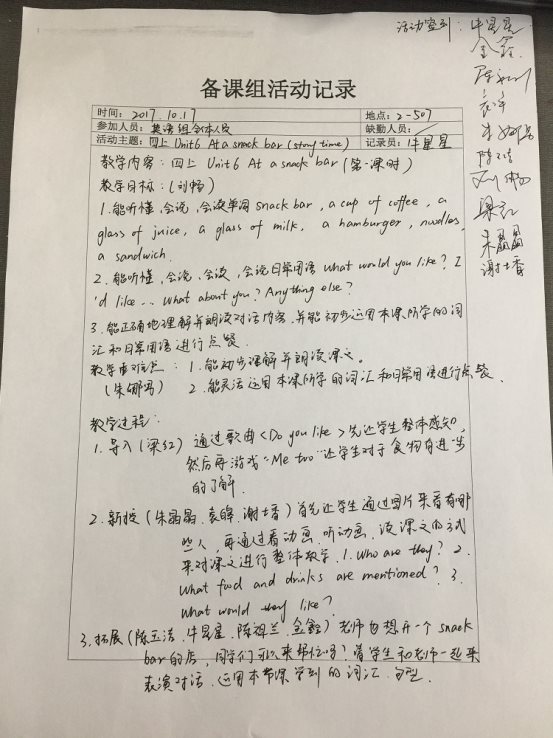 活动签到：牛星星
金鑫
袁晖
陈玉洁
刘畅
梁红
朱晶晶
谢士香
备课组活动记录
时间：2017.10.17 地点：2-507
参加人员：英语组全体人员 缺勤人员：
活动主题：四上 Unit6 At a snack bar (story time) 记录员：牛星星
教学内容：四上 Unit6 At a snack bar (第一课时)
教学目标：(刘畅)
1.能听懂、会说、会读单词 snack bar, a cup of coffee, a
glass of juice, a glass of milk, a hamburger, noodles,
a sandwich.
2.能听懂、会说、会读、会说日常用语 What would you like? I
'd like... What about you? Anything else?
3.能正确地理解并朗读对话内容，并能初步运用本课所学的词
汇和日常用语进行点餐.
教学重难点：1.能初步理解并朗读课文。
(朱娜玛) 2.能灵活运用本课所学的词汇和日常用语进行点餐.
教学过程：
1.导入(梁红) 通过歌曲<Do you like>先让学生整体感知，
然后再游戏"Me too"让学生对于食物有进一步
的了解.
2.新授(朱晶晶、袁晖、谢士香)首先让学生通过图片来看有哪
些人，再通过看动画、听动画、读课文的方式
来对课文进行整体教学.1.Who are they? 2.
What food and drinks are mentioned? 3.
What would they like?
3.拓展(陈玉洁、牛星星、陈祖兰、金鑫)老师也想开一个snack
bar的店，同学们可以来帮忙吗？请学生和老师一起来
表演对话，运用本节课学到的词汇、句型.